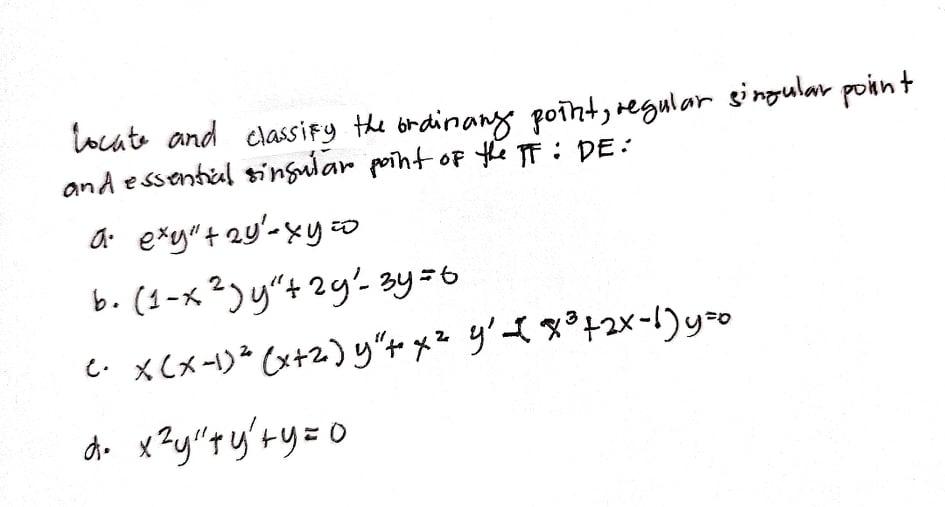 Locate and classify the ordinany point, regular singular point
and essential singular point of the FF: DE:
a. eˣy"+2y'-xy=0
b. (1-x²)y"+2y'-3y=0
c. x(x-1)²(x+2)y"+x² y'-(x³+2x-1)y=0
d. x²y"+y'+y=0